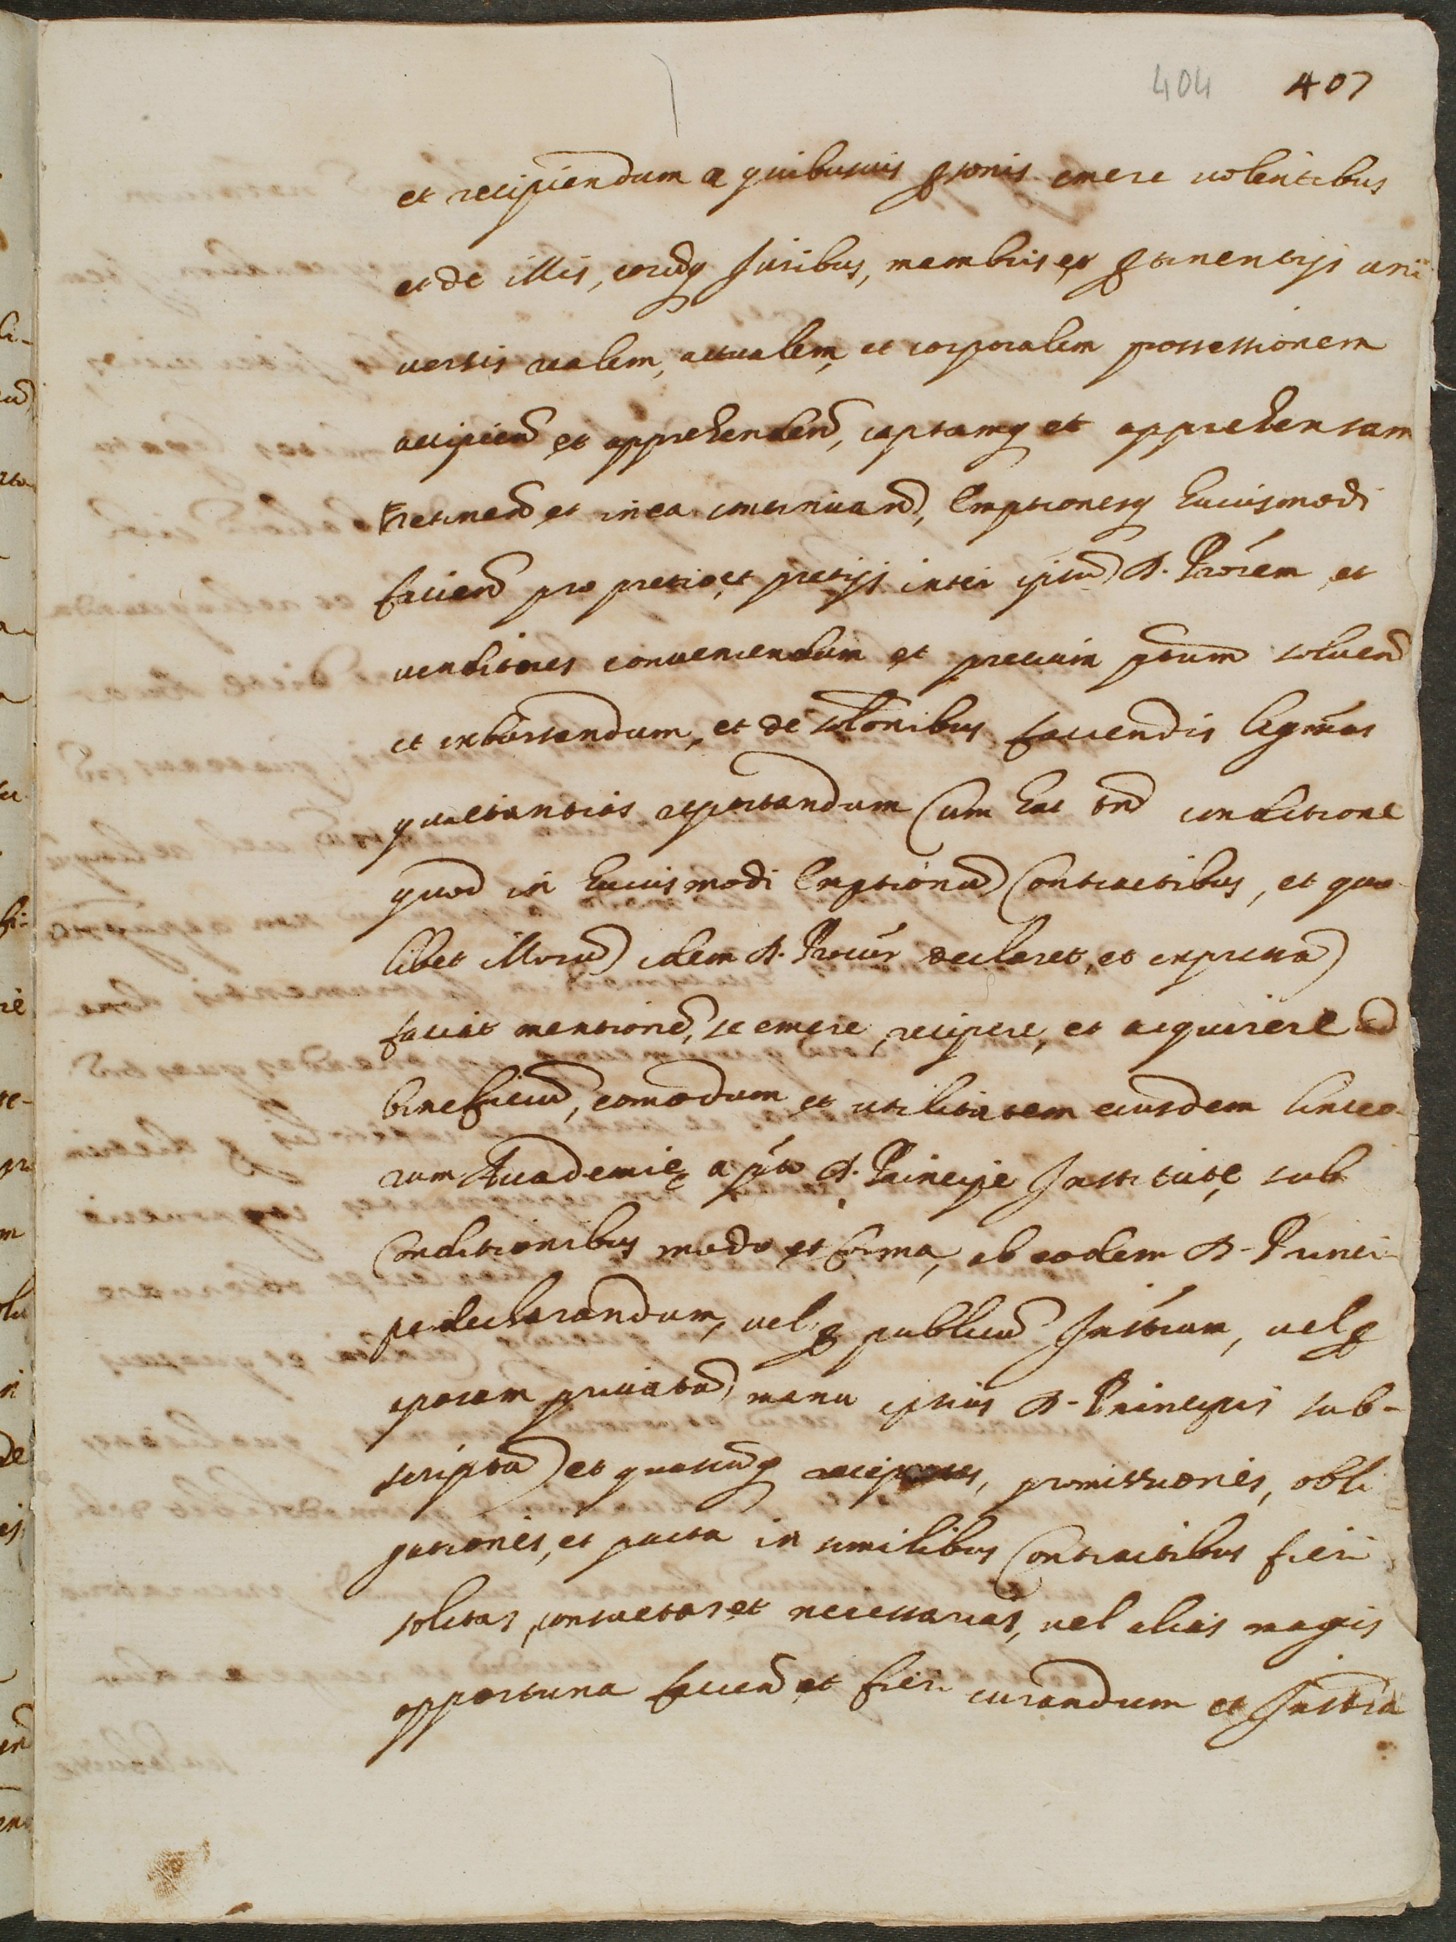 404 407
et recipiendum a quibusuis psonis emere uolentibus
et de illis, eorūq Juribus, membris et ptinentijs uni
uersis realem, actualem, et corporalem possessionem
accipiend et apprehendend, captamq et apprehensam
retinend et in ea continuand, Emptionesq huiusmodi
faciend pro pretio et pretijs inter ipsū D. Prorem et
uenditores conueniendum et precium ptum soluend
et exbursandum, et de solonibus faciendis legmas
quietantias reportandum Cum hac tñ conditione
quod in huiusmodi Emptionū Contractibus, et quo
libet illorū idem D. Procūr declaret, et expressā
faciat mentionē, se emere, recipere, et acquirere ad
beneficiū, comodum et utilitatem eiusdem Linceo
rum Academię a pto D. Principe Institutę sub
Conditionibus modo et forma, ab eodem D. Princi
pe declarandum, uel p publicū Instrum, uel p
apocam priuatā manu ipsius D. Principis sub-
scriptā et quascuq promissiones, obli
gationes, et pacta in similibus Contractibus fieri
solitas, consuetas et necessarias, uel alias magis
opportuna faciend et fieri curandum et Instrā